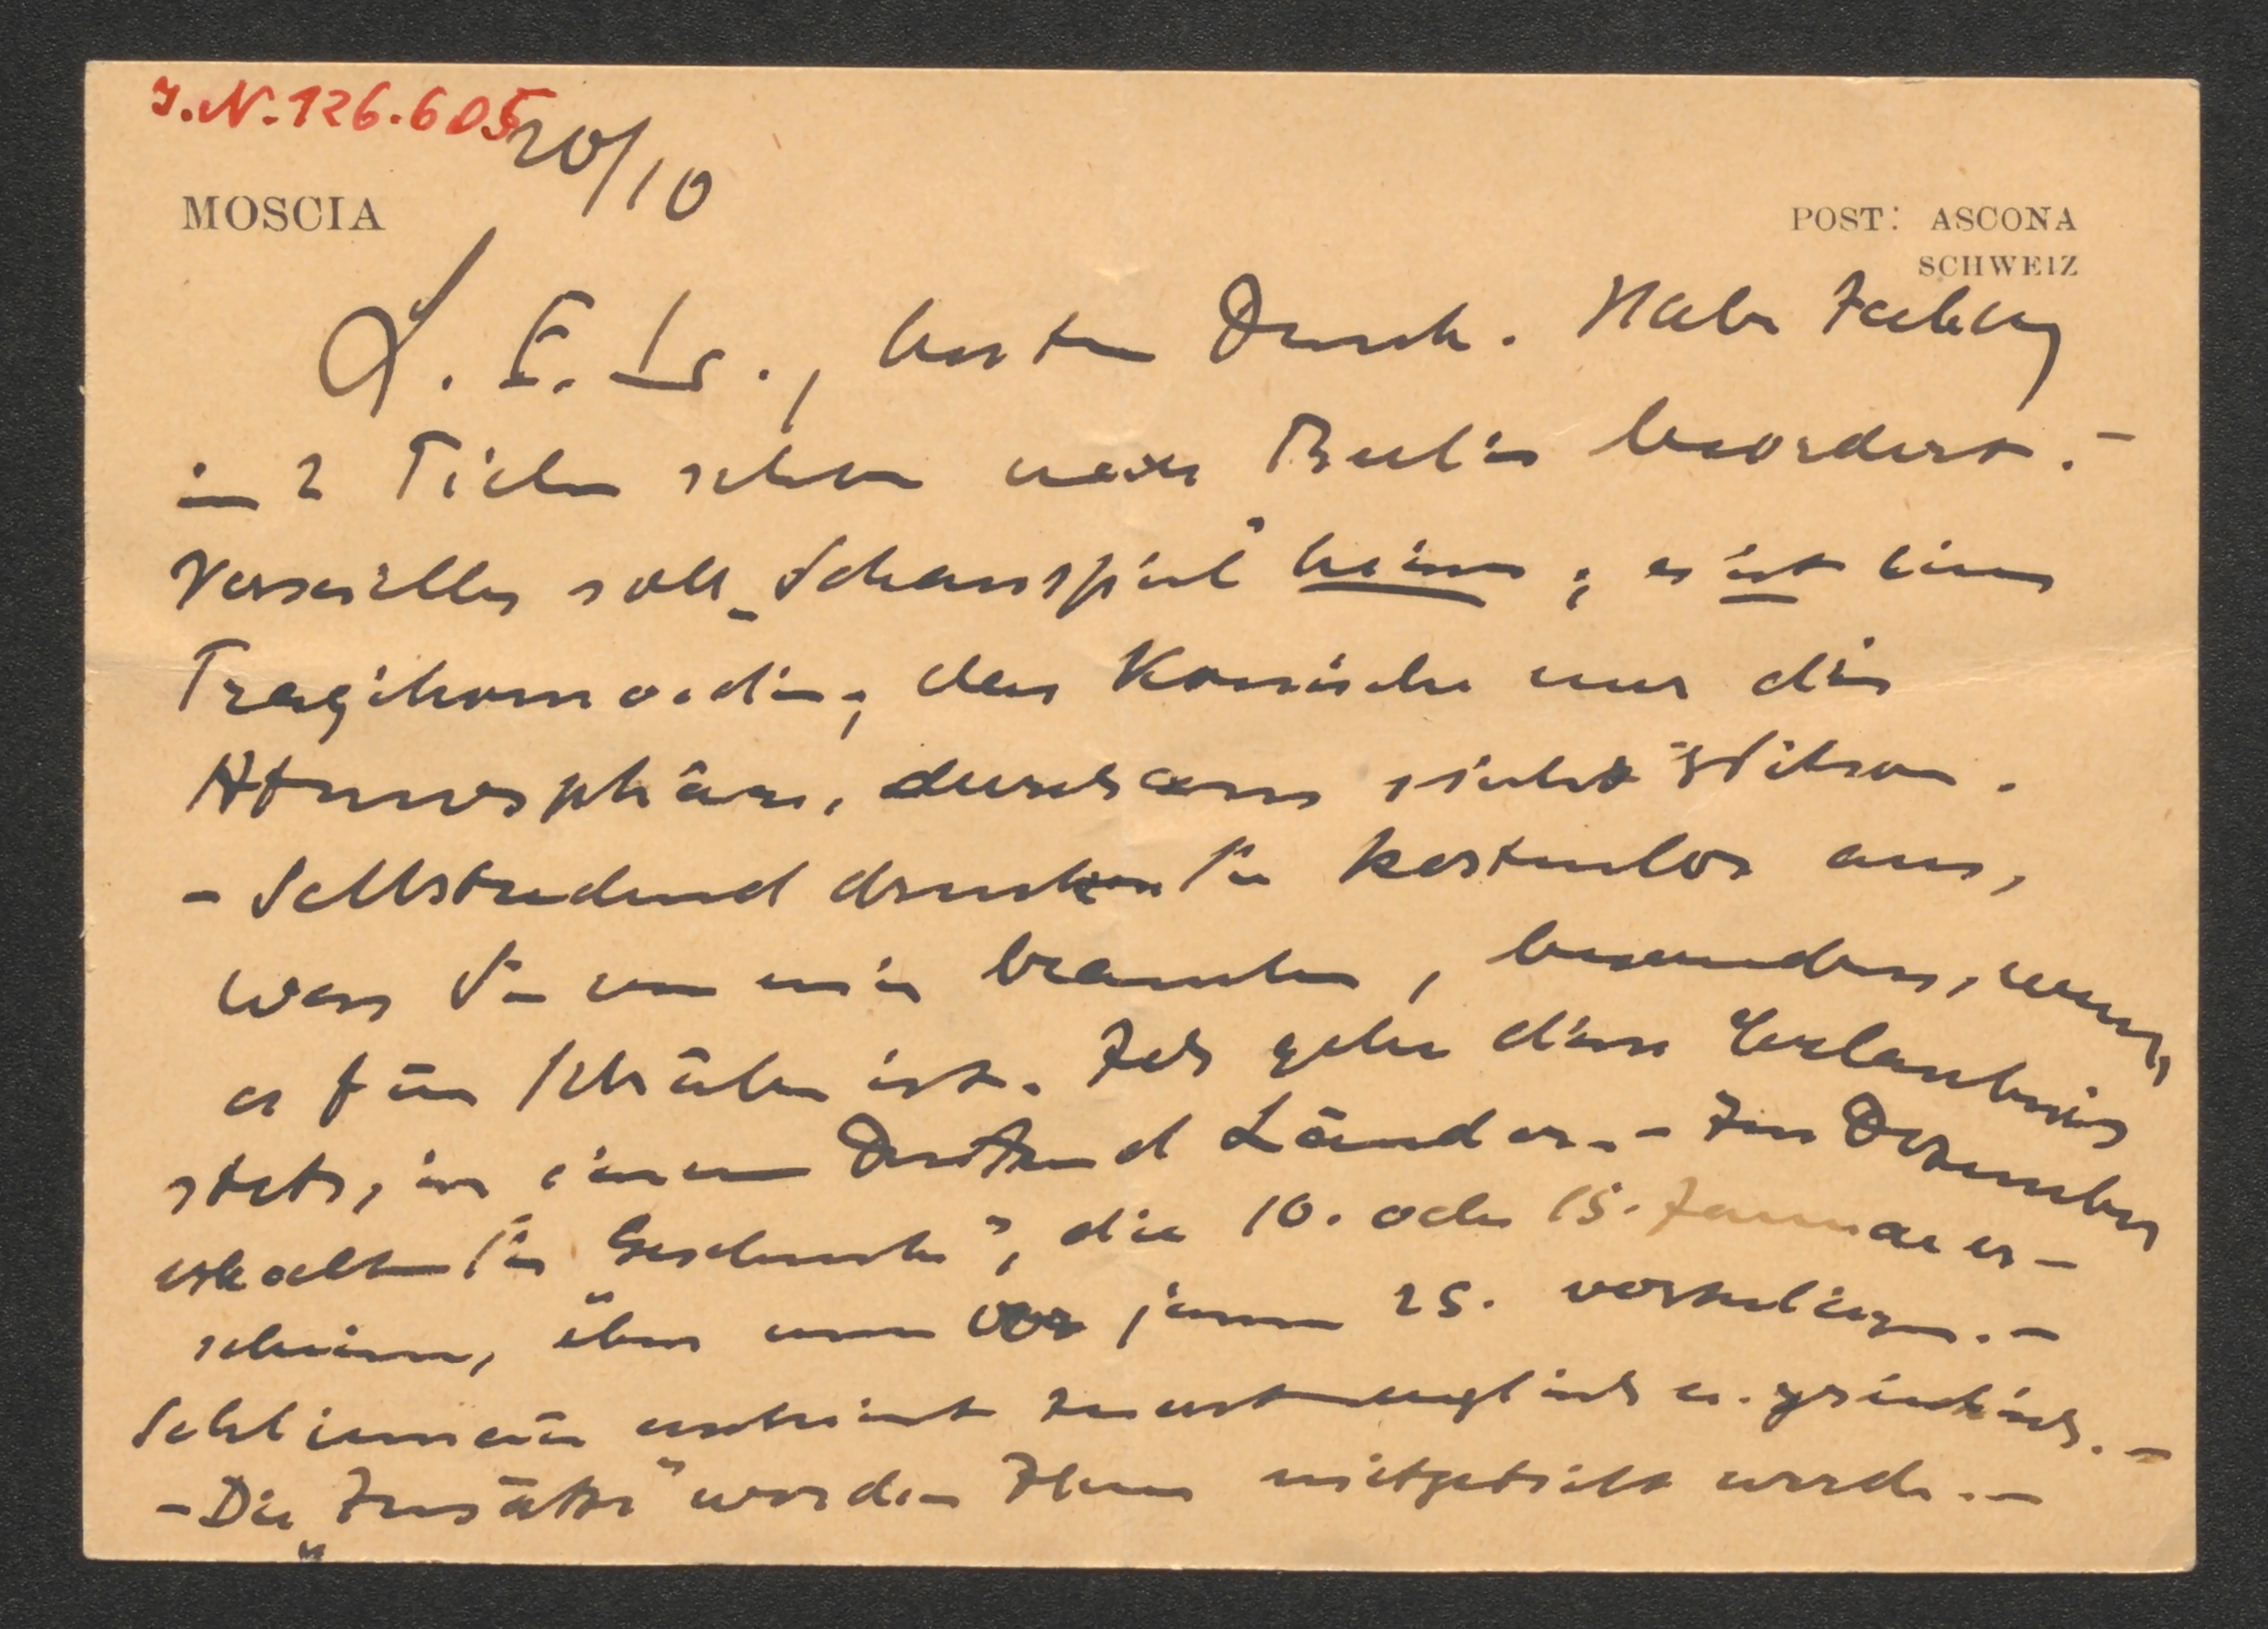 I.N. 126.605
20/10
MOSCIA
POST: ASCONA
SCHWEIZ
L. E. Lr., besten Dank. Habe
in 2 Teilen schon nach Berlin beordert. –
Versailles soll „Schauspiel" heissen; es ist eine
Tragikomoedie; das Komische nur die
Atmosphäre, durchaus nicht Wilson.
– Selbstredend drucken Sie kostenlos aus,
was Sie von mir brauchen, besonders, wenn
es für Schüler ist. Ich gebe diese Erlaubnis
stets, in einem Dutzend Länder. – Im Dezember
erhalten Sie „Geschenke", die 10. oder 15. Januar er-
scheinen, über nun vor jenem 25. vorzulegen. –
Schliemann erscheint zuerst englisch u. griechisch. –
– Die „Zusätze" werden Ihnen mitgeteilt werden. –